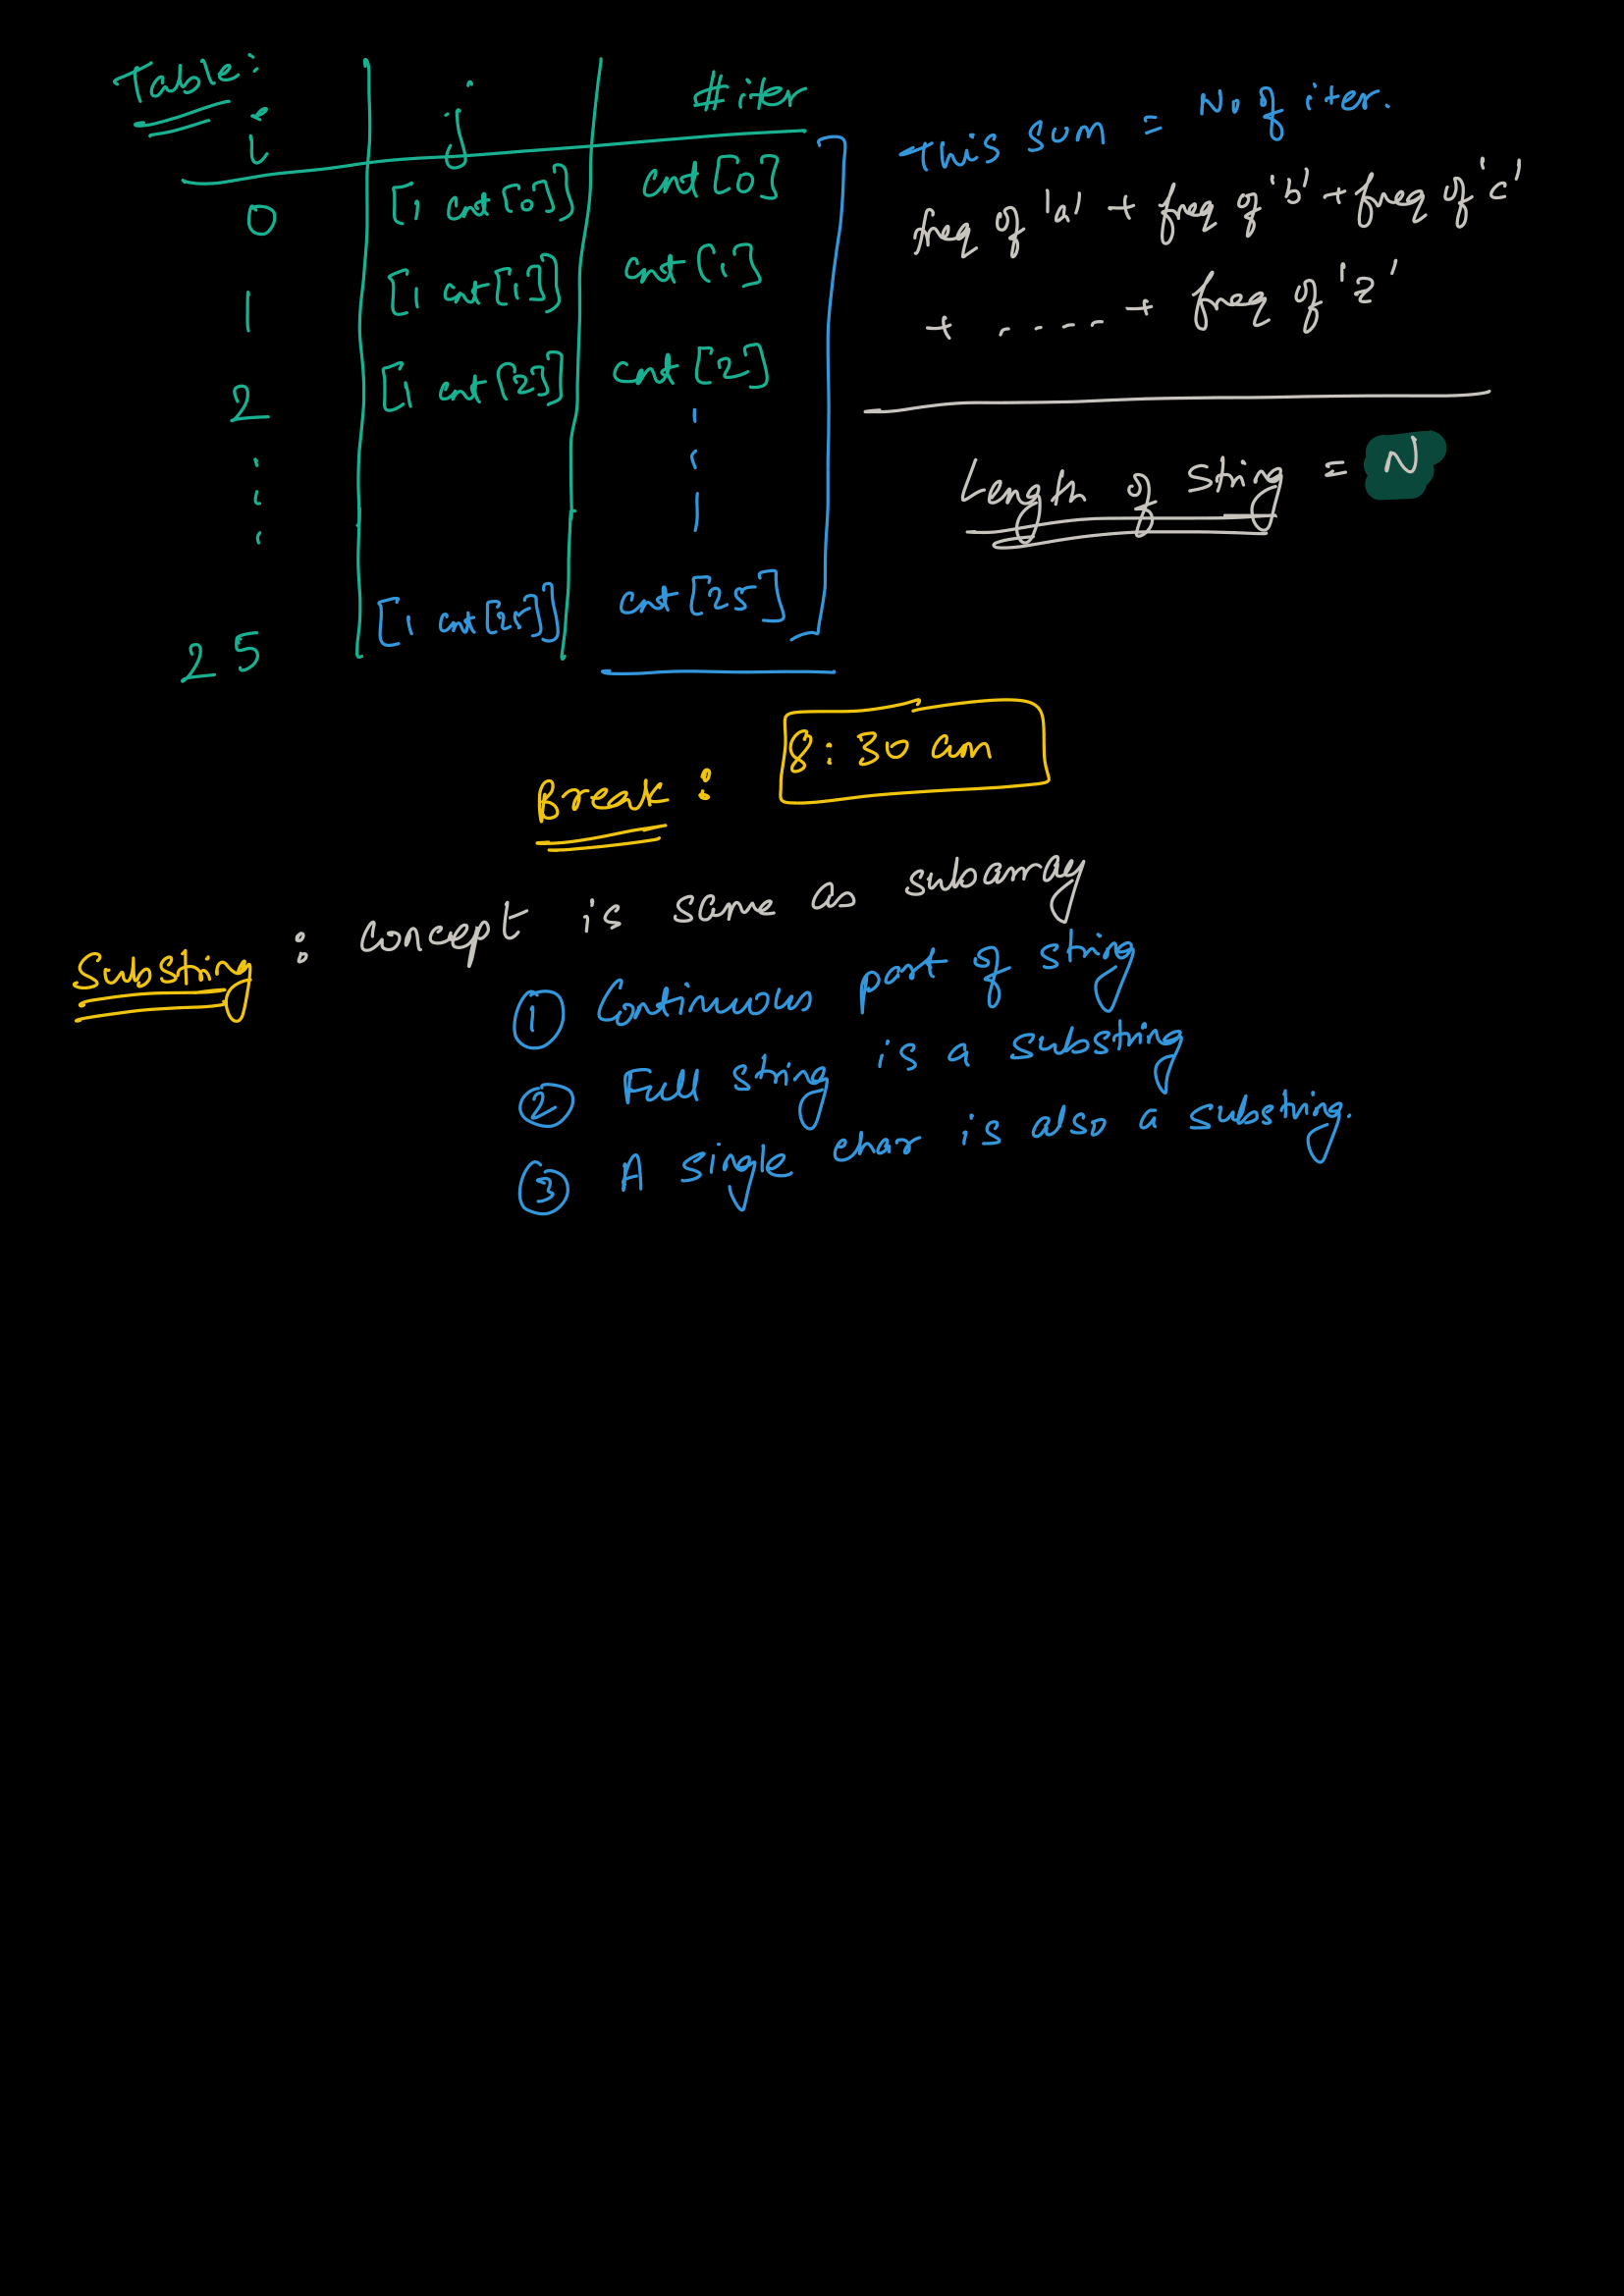 Table:
i j #iter
0 [1 cnt[0]] cnt[0]
1 [1 cnt[1]] cnt[1]
2 [1 cnt[2]] cnt[2]
25 [1 cnt[25]] cnt[25]
This sum = No of iter.
freq of 'a' + freq of 'b' + freq of 'c'
+ ..... + freq of 'z'
Length of string = N
Break : 8:30 am
Substring : concept is same as subarray
① Continuous part of string
② Full string is a substring
③ A single char is also a substring.